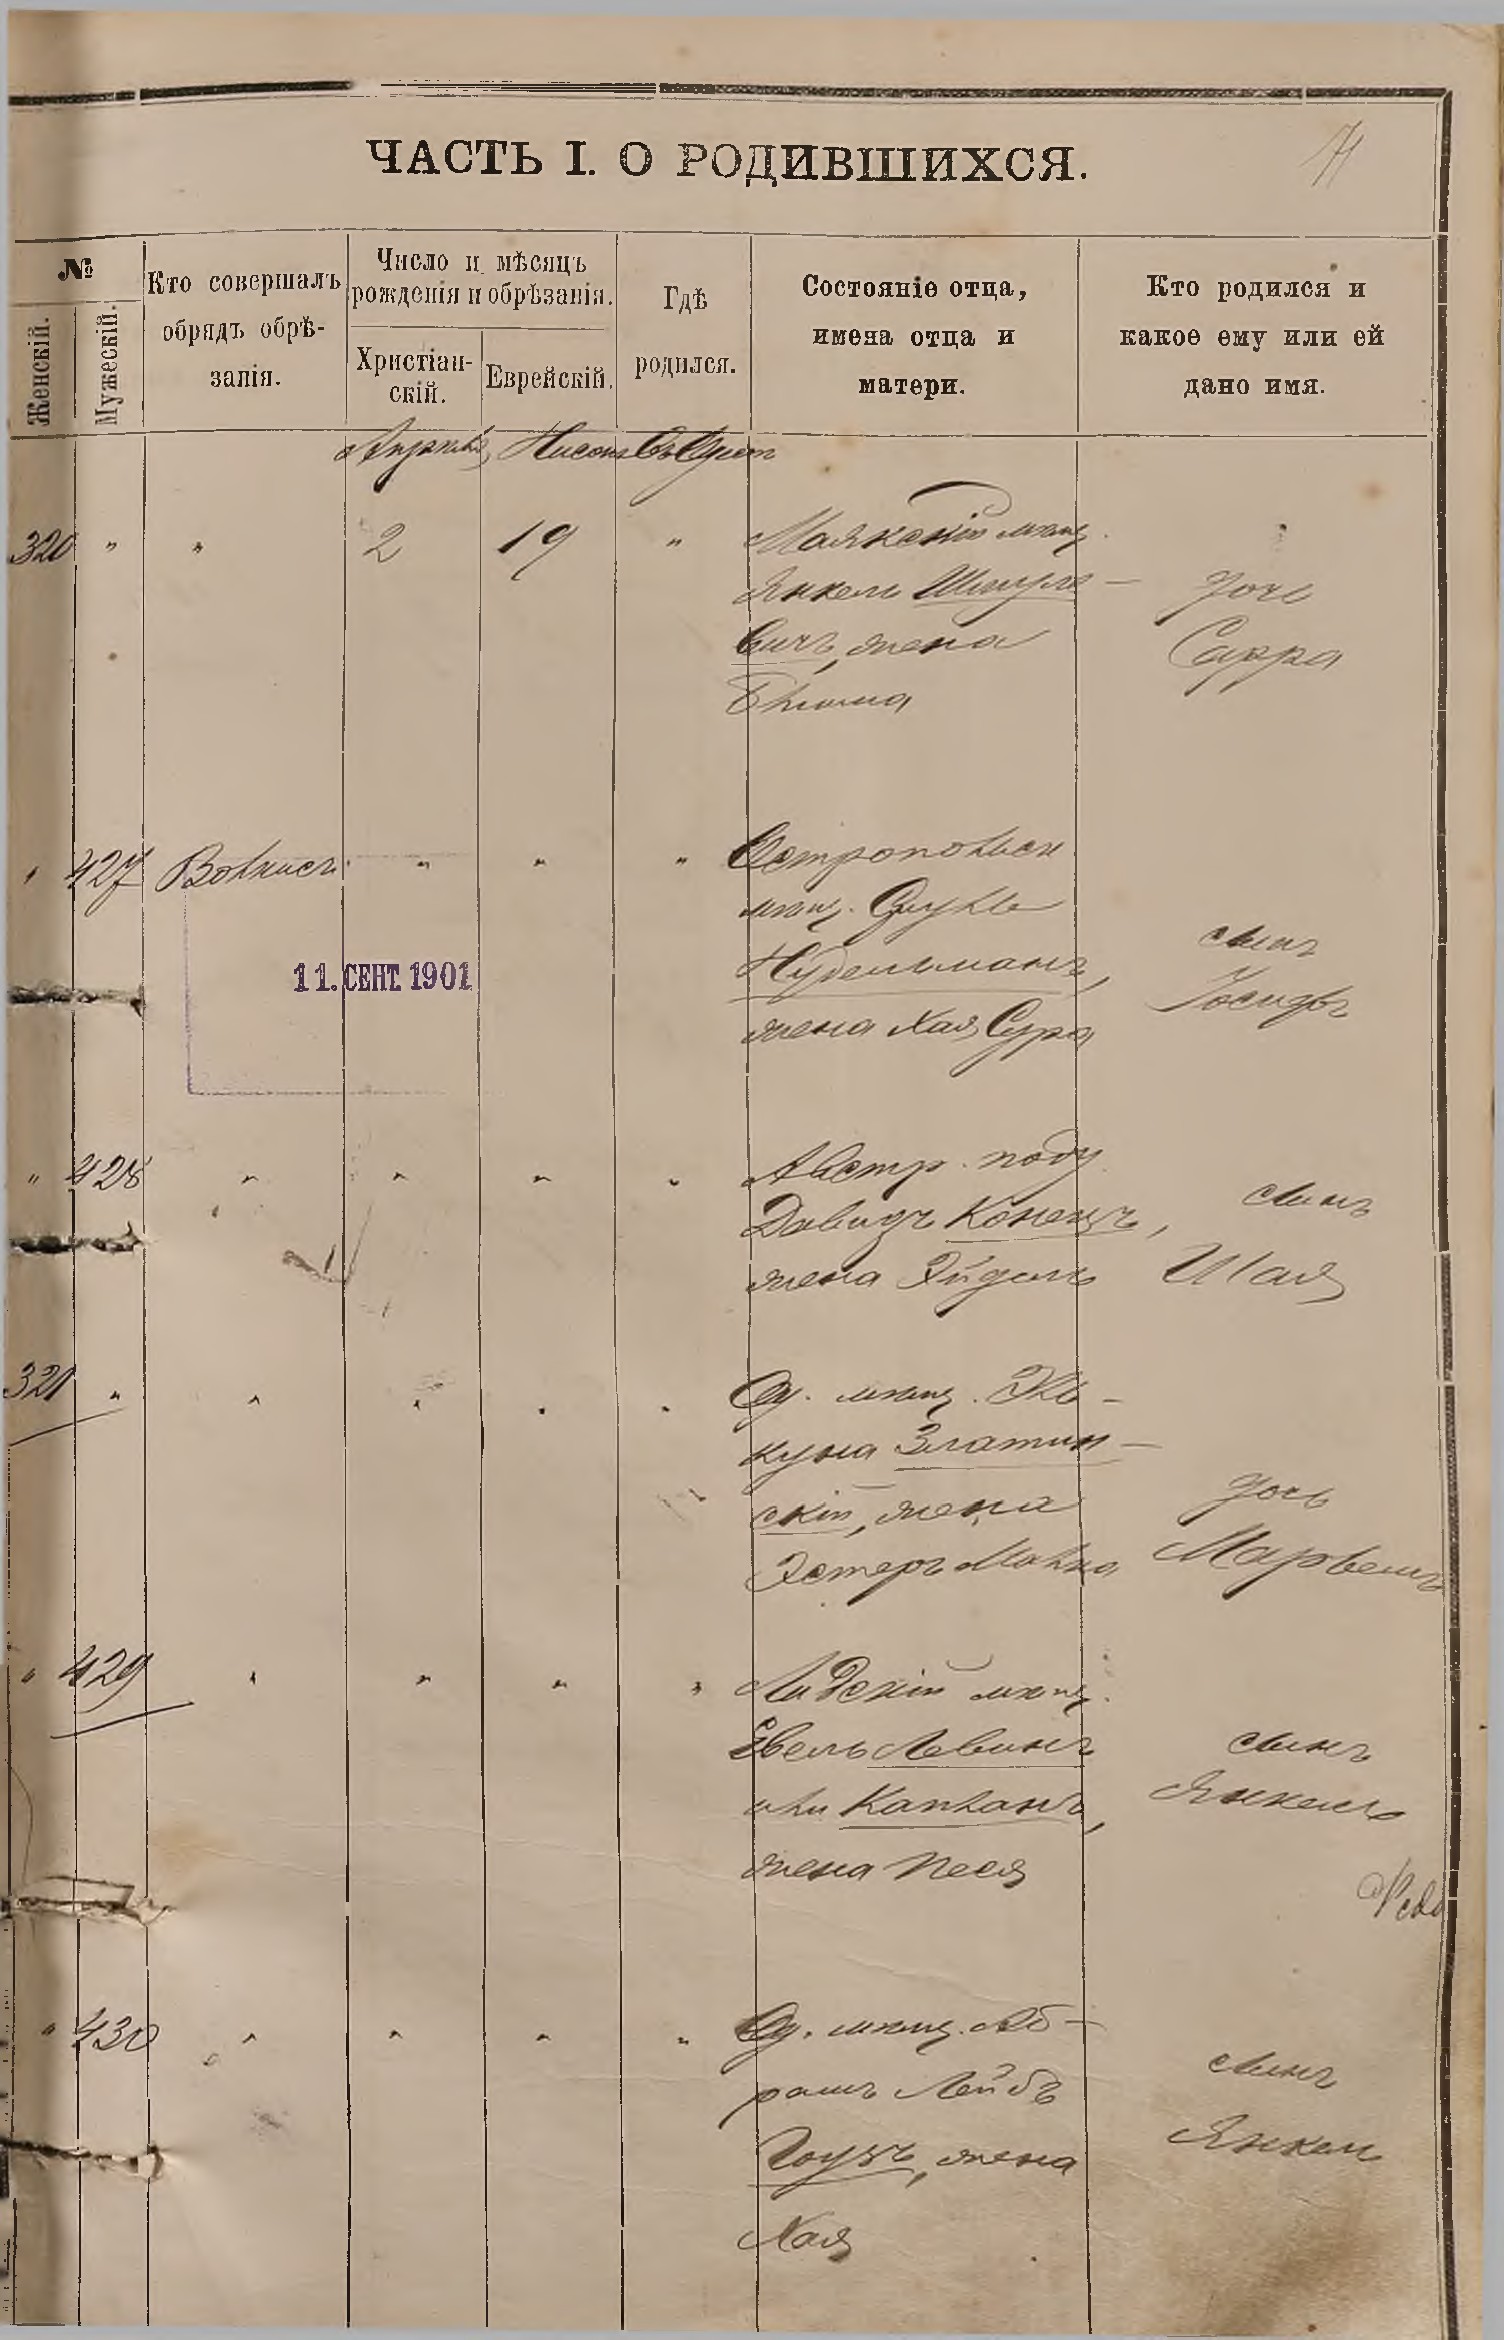 ЧАСТЬ I. О РОДИВШИХСЯ.
71
№
Женскій.
Мужескій.
Кто совершалъ
обрядъ обрѣ-
занія.
Число и мѣсяцъ
рожденія и обрѣзанія.
Христіан-
скій.
Еврейскій.
Гдѣ
родился.
Состояніе отца,
имена отца и
матери.
Кто родился и
какое ему или ей
дано имя.
Апрель Нисонъ Въ Одессѣ
320 " " 2 19 " Маякскій мѣщ.
Янкель Шмуле-
вичъ, жена
Блюма
дочь
Сарра
" 427 Волисъ " " "Острополіск
мѣщ. Сруль
Нудельманъ,
жена Хая Сура
сынъ
Іосифъ
11. СЕНТ. 1901
" 428 " " " " Австр. подд.
Давидъ Конецъ,
жена Эйдель
сынъ
Шая
321 " " " " " Од. мѣщ. Эль-
куна Златин-
скій, жена
Эстеръ Малка
дочь
" 429 " " " " Лидскій мѣщ.
Евель Левинъ
или Капланъ,
жена Песя
сынъ
Янкель
" 430 " " " " Од. мѣщ. Аб-
рамъ Лейбъ
Гоузъ, жена
Хая
сынъ
Янкель